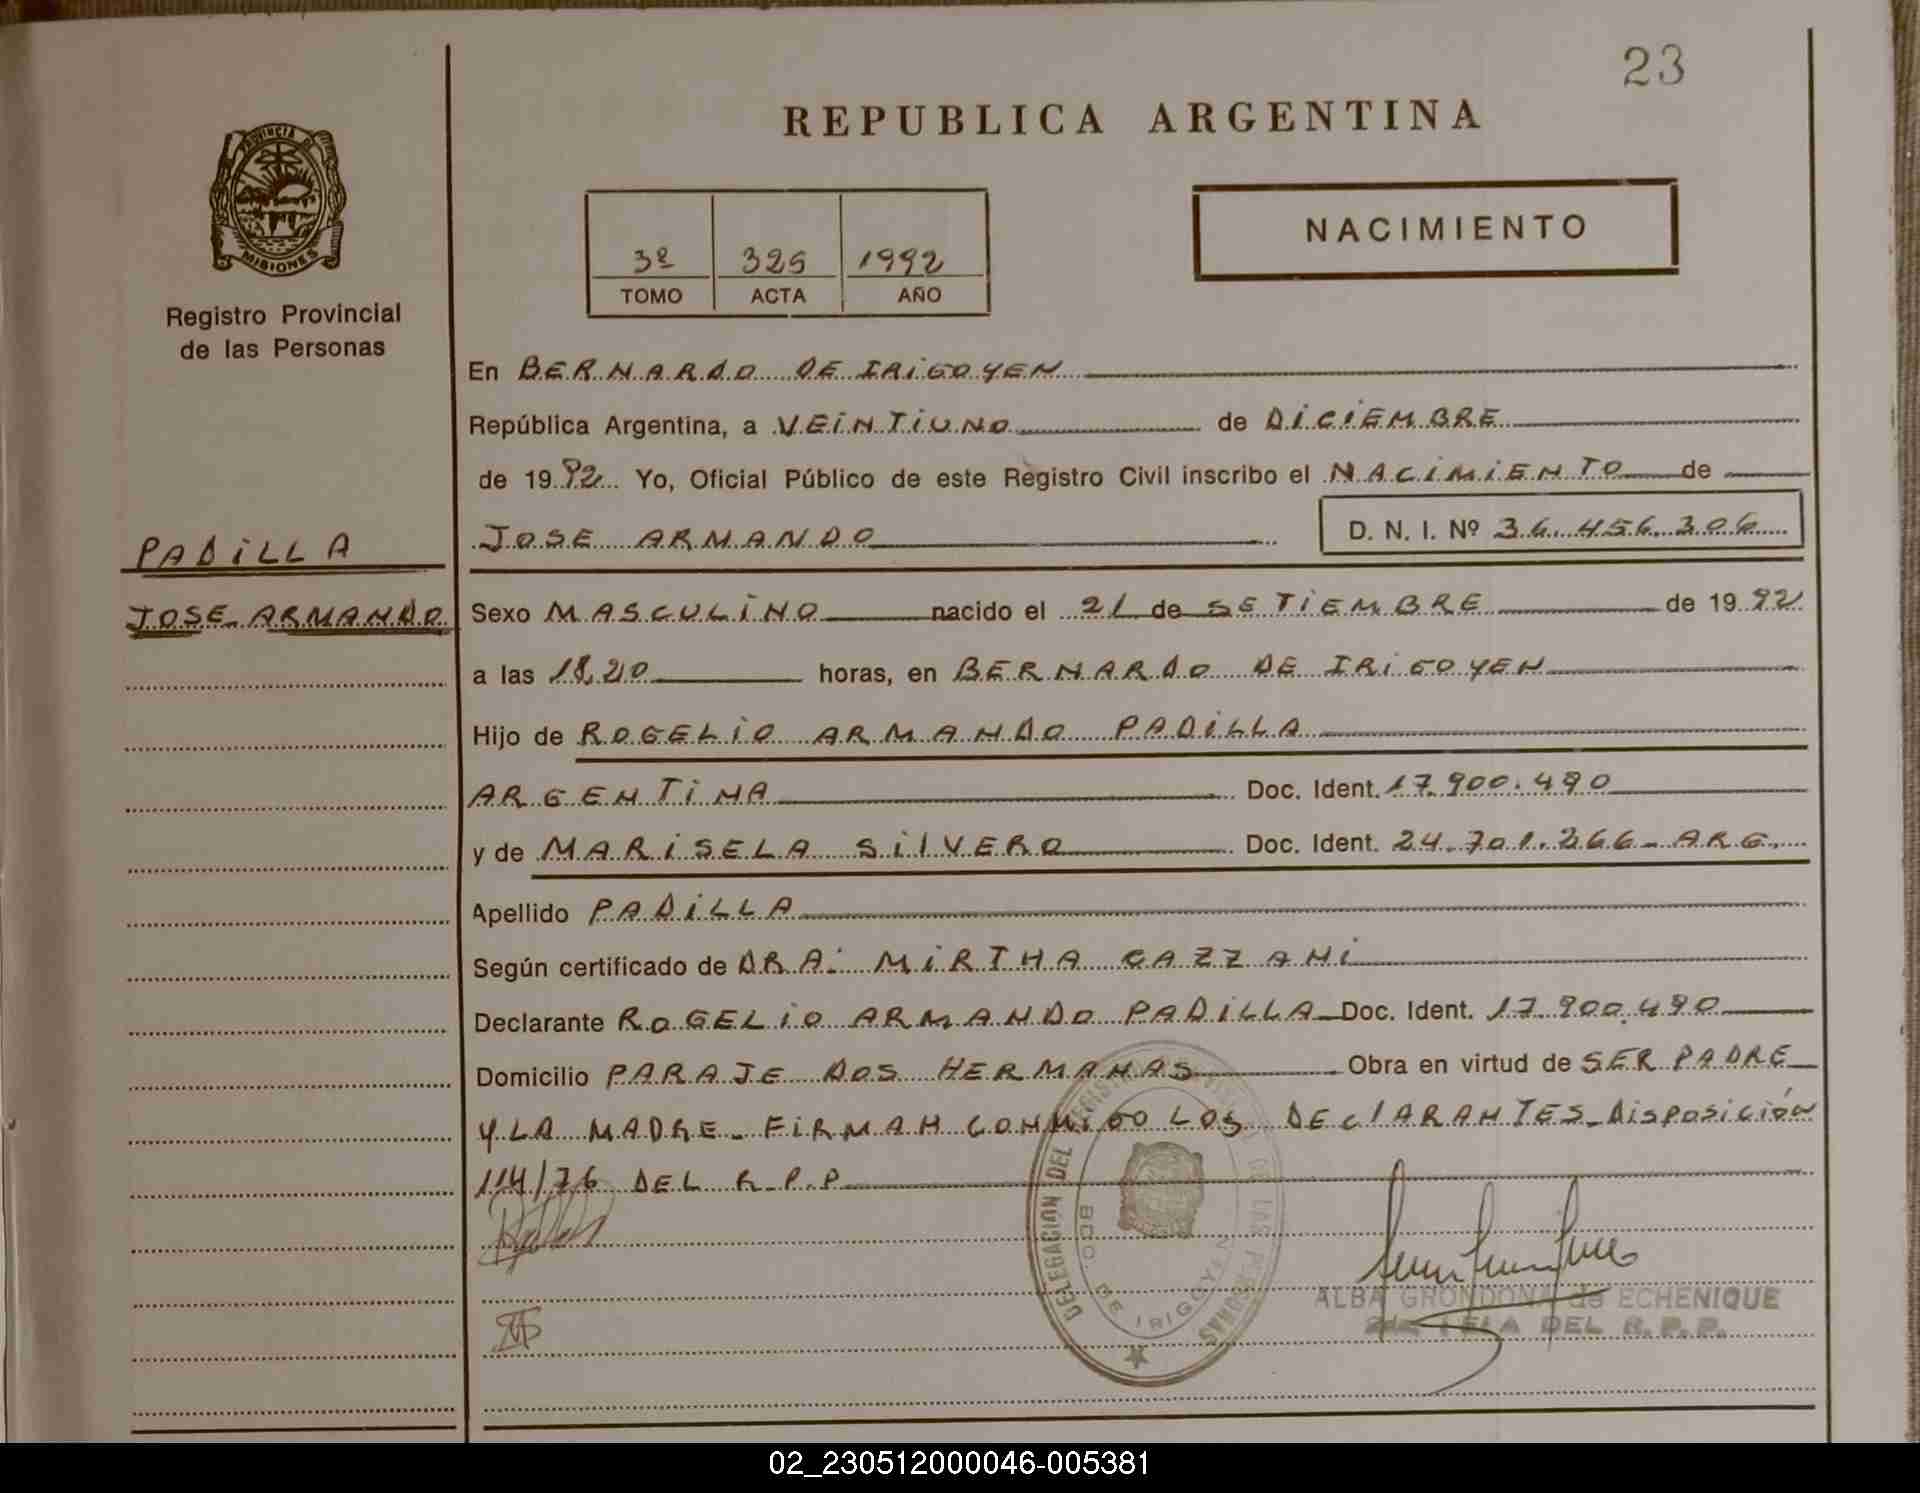 23
REPUBLICA ARGENTINA
PROVINCIA DE
MISIONES
Registro Provincial
de las Personas
3º 325 1992
TOMO ACTA AÑO
NACIMIENTO
En BERNARDO DE IRIGOYEN
República Argentina, a VEINTIUNO de DICIEMBRE
de 1992 Yo, Oficial Público de este Registro Civil inscribo el NACIMIENTO de
JOSE ARMANDO D. N. I. Nº 36.456.306
PADILLA
JOSE ARMANDO
Sexo MASCULINO nacido el 21 de SETIEMBRE de 1992
a las 18,20 horas, en BERNARDO DE IRIGOYEN
Hijo de ROGELIO ARMANDO PADILLA
ARGENTINA Doc. Ident. 17.900.490
y de MARISELA SILVERO Doc. Ident. 24.701.266 - ARG.
Apellido PADILLA
Según certificado de DRA: MIRTHA CAZZANI
Declarante ROGELIO ARMANDO PADILLA Doc. Ident. 17.900.490
Domicilio PARAJE DOS HERMANAS Obra en virtud de SER PADRE
Y LA MADRE - FIRMAN CONMIGO LOS DECLARANTES - DISPOSICIÓN
114/76 DEL R.P.P.
DELEGACIÓN DEL REGISTRO DE LAS PERSONAS
BDO. DE IRIGOYEN
ALBA GRONDONA de ECHENIQUE
DEL R.P.P.
02_230512000046-005381